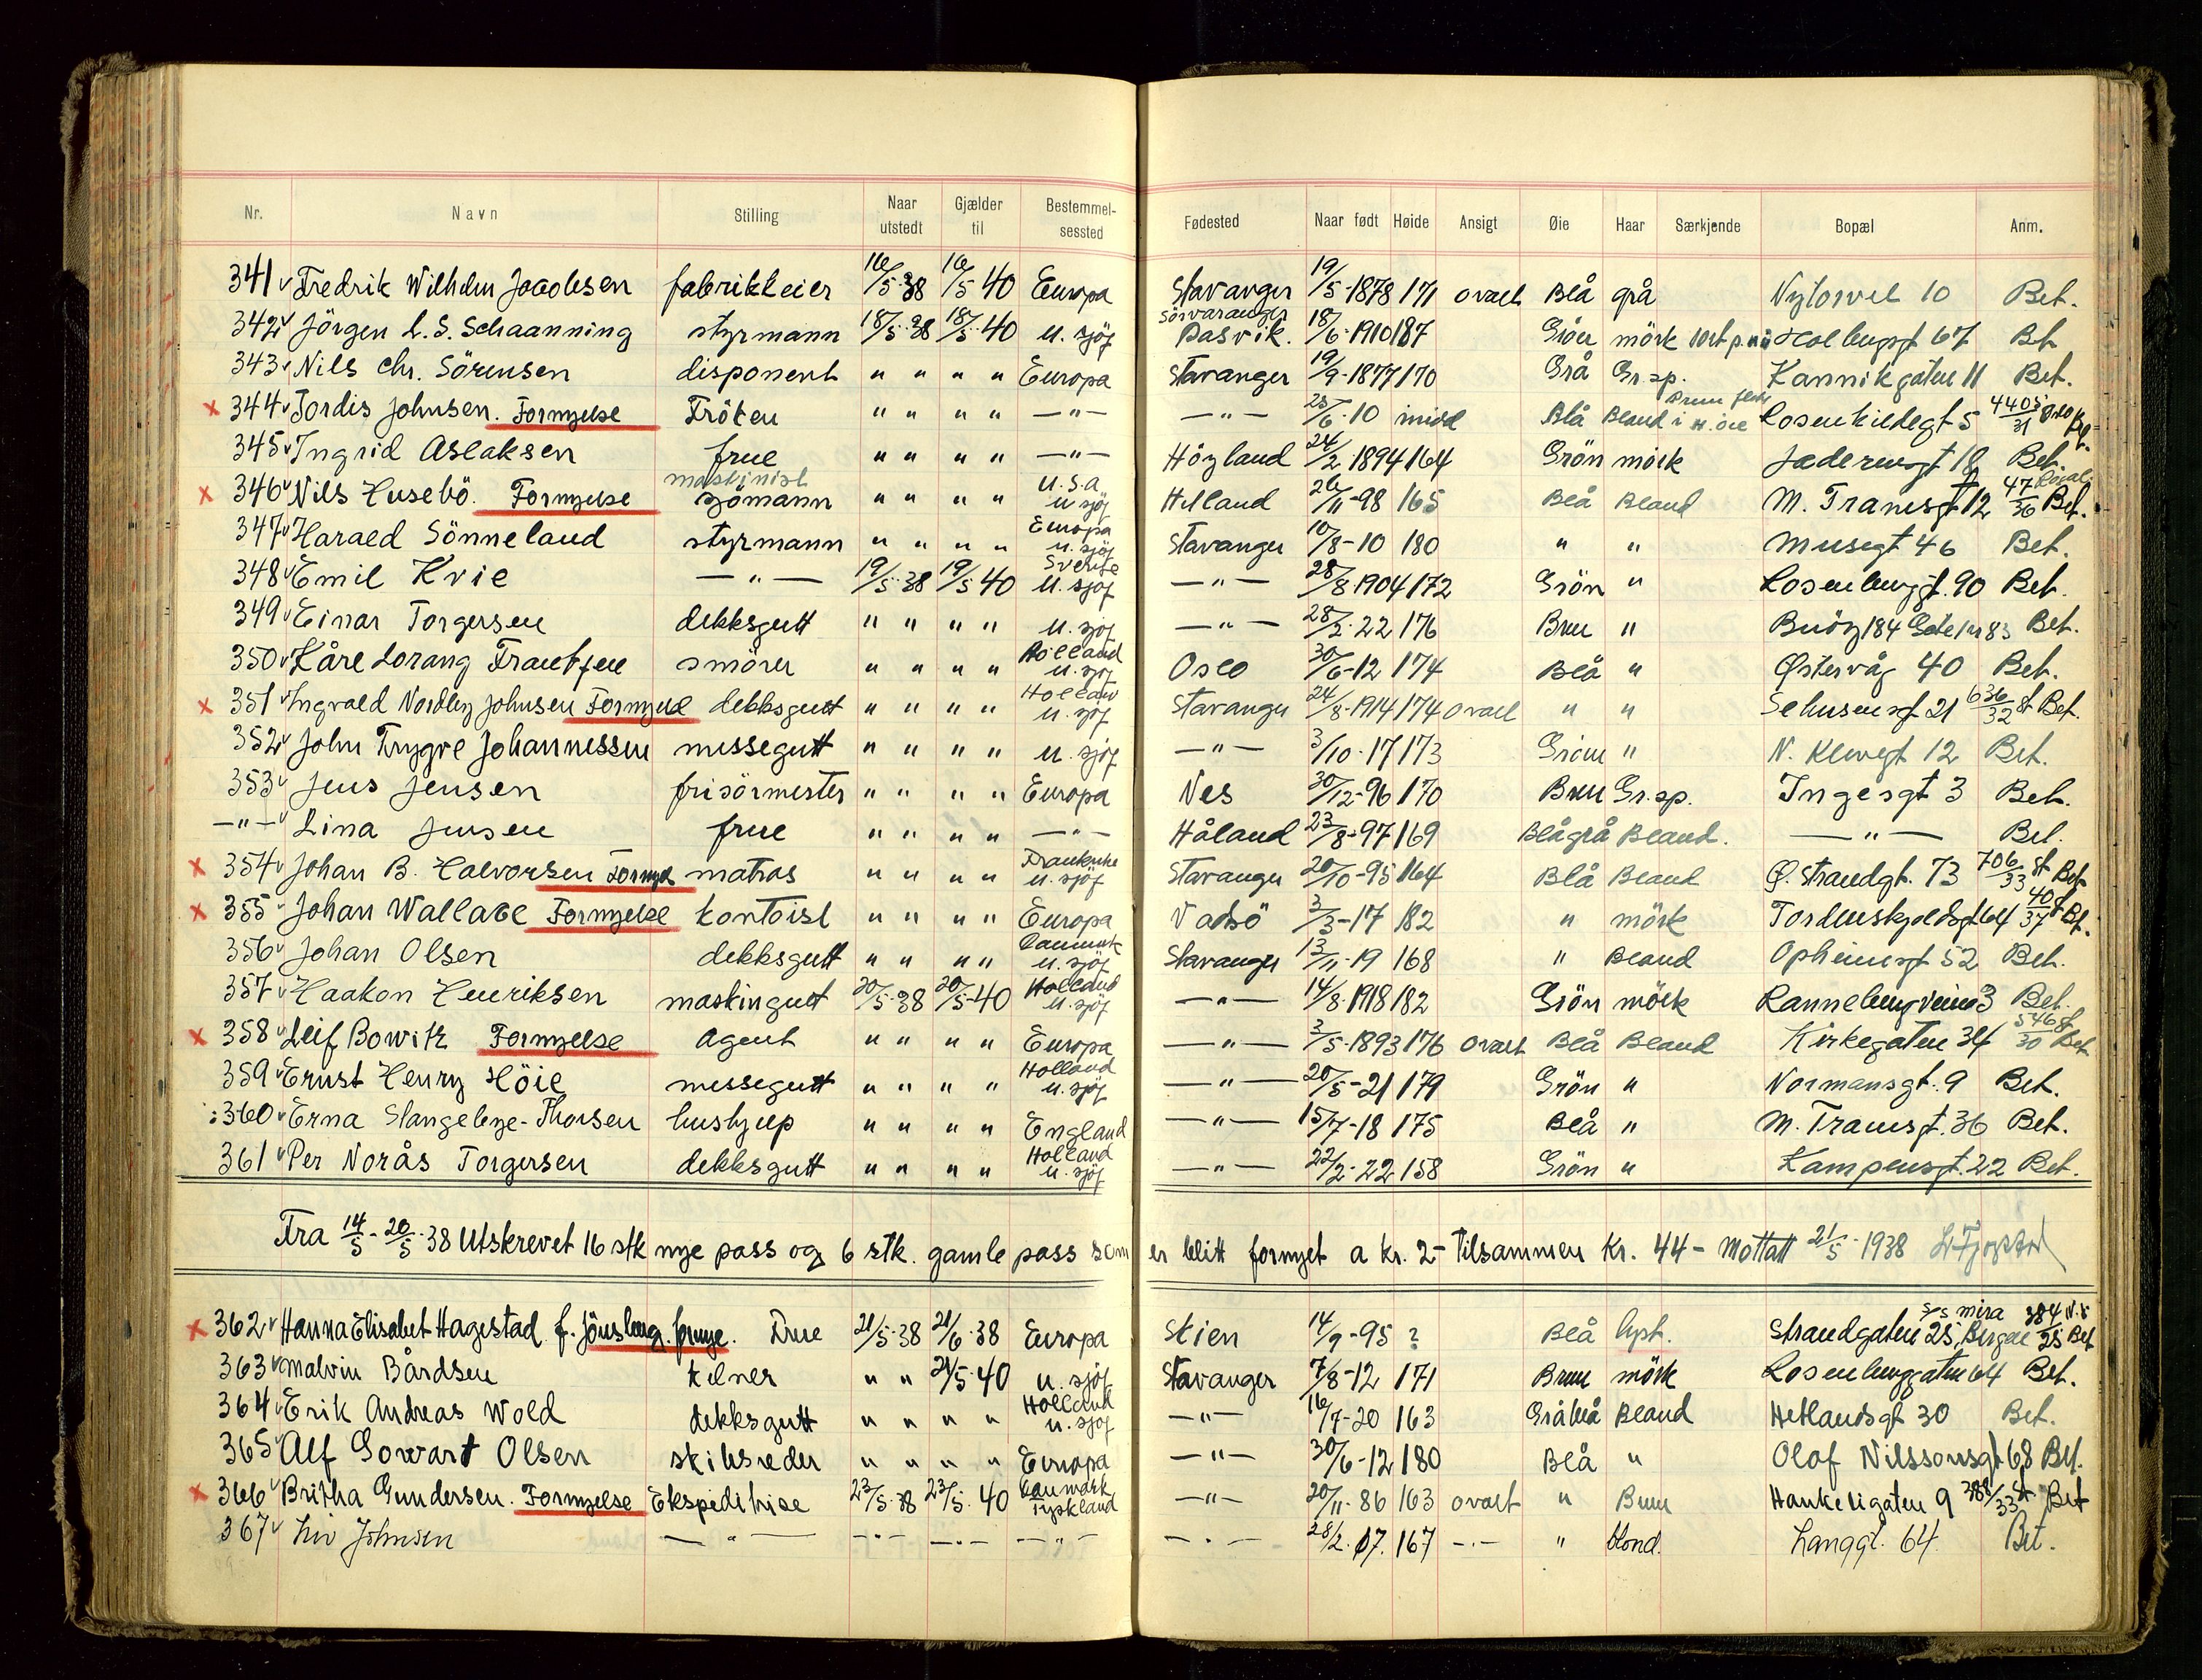 Nr. Navn Stilling Naar utstedt Gjælder til Bestemmelsessted Fødested Naar født Høide Ansigt Øie Haar Særkjende Bopæl Anm.
341 Fredrik Wilhelm Jacobsen fabrikkeier 16/5-38 16/5-40 Europa Stavanger 19/5-1878 171 ovalt Blå grå Nytorvet 10 Bet.
342 Jörgen L. S. Schaanning styrmann 18/5-38 18/5-40 u. sjöf Sörvaranger Pasvik. 18/6-1910 187 Grön mörk Holbergsgt 67 Bet
343 Nils Chr. Sörensen disponent " " " " Europa Stavanger 19/9-1877 170 Grå Gr.sp. Kannikgaten 11 Bet.
x 344 Tordis Johnsen. Fornyelse Fröken " " " " —"— —"— 25/6-10 midd Blå Blond Brun flekk i H. öie Rosenkildegt 5 4405/31
345 Ingrid Aslaksen frue " " " " —"— Höyland 24/2-1894 164 Grön mörk Jaderensgt 18 Bet.
x 346 Nils Husebö. Fornyelse maskinist sjömann " " " " U.S.A u sjöf Hetland 26/11-98 165 Blå Blond M. Transgt 12 47/36 Bet.
347 Harald Sönneland styrmann " " " " Europa u. sjöf Stavanger 10/8-10 180 " " Musegt 46 Bet.
348 Emil Kvie —"— 19/5-38 19/5-40 Sverige u. sjöf —"— 28/8-1904 172 Grön " Rosenberggt. 90 Bet.
349 Einar Torgersen dekksgutt " " " " u. sjöf —"— 28/2-22 176 Brun " Buöy 184 Bet.
350 Kåre Lorang smörer " " " " Holland u. sjöf Oslo 30/6-12 174 Blå " Østervåg 40 Bet.
x 351 Ingvald Nordby Johnsen Fornyed dekksgutt " " " " Holland u. sjöf Stavanger 24/8-1914 174 ovalt " " Sehusensgt 21 636/32 st Bet.
352 John Trygve Johannessen messegutt " " " " u. sjöf —"— 3/10-17 173 Grönn " N. Klevegt 12 Bet.
353 Jens Jensen frisörmester " " " " Europa Nes 30/12-96 170 Brun Gr.sp. Ingesgt 3 Bet.
—"— Lina Jensen frue " " " " —"— Håland 23/8-97 169 Blågrå Blond. —"— Bet.
x 354 Johan B. Halvorsen Fornye matros " " " " Frankrike u. sjöf Stavanger 20/10-95 164 Blå Blond Ø. Strandgt. 73 706/33 st Bet
x 355 Johan Wallace Fornyelse kontorist " " " " Europa Vadsö 3/3-17 182 " mörk Tordenskjoldsgt 64 40/37 Bet.
356 Johan Olsen dekksgutt " " " " Danmark u. sjöf Stavanger 13/11-19 168 " Blond Opheimsgt 52 Bet.
357 Haakon Henriksen maskingutt 20/5-38 20/5-40 Holland u. sjöf —"— 14/8-1918 182 Grön mörk Rannebergveien 3 Bet.
x 358 Leif Bowitz Fornyelse Agent " " " " Europa —"— 3/5-1893 176 ovalt Blå Blond Kirkegaten 34 546/30 st Bet
359 Ernst Henry Höie messegutt " " " " Holland u. sjöf —"— 20/5-21 179 Grön " Normansgt. 9 Bet.
360 Erna Stangebye-Thorsen hushjelp " " " " England —"— 15/7-18 175 Blå " M. Transgt. 36 Bet.
361 Per Norås Torgersen dekksgutt " " " " Holland u. sjöf —"— 22/2-22 158 Grön " Kampensgt. 22 Bet.
Fra 14/5-20/5-38 Utskrevet 16 stk nye pass og 6 stk. gamle pass som er blitt fornyet a kr. 2- Tilsammen Kr. 44- Mottatt 21/5-1938
x 362 Hanna Elisabet Hagestad f. Jönsberg. fornye. Frue 21/5-38 21/6-38 Europa Skien 14/9-95 ? Blå lyst. Strandgaten 25, Bergen S/S Mira 384/25 Bet
363 Malvin Bårdsen kelner " " 21/5-40 u. sjöf Stavanger 7/8-12 171 Brun mörk Rosenberggaten 64 Bet.
364 Erik Andreas Wold dekksgutt " " " " Holland u. sjöf —"— 16/7-20 163 Gråblå Blond Hetlandsgt 30 Bet.
365 Alf Gowart Olsen skibsreder " " " " Europa —"— 30/6-12 180 Blå " Olaf Nilssonsgt 68 Bet.
x 366 Britha Gundersen. Fornyelse Ekspeditrise 23/5-38 23/5-40 Danmark Tyskland —"— 20/11-86 163 ovalt " Brun Haukeligaten 9 388/33 st Bet
367 Liv Johnsen —"— —"— —"— —"— —"— 28/2-07. 167 —"— " blond. Langgt. 64. Bet.